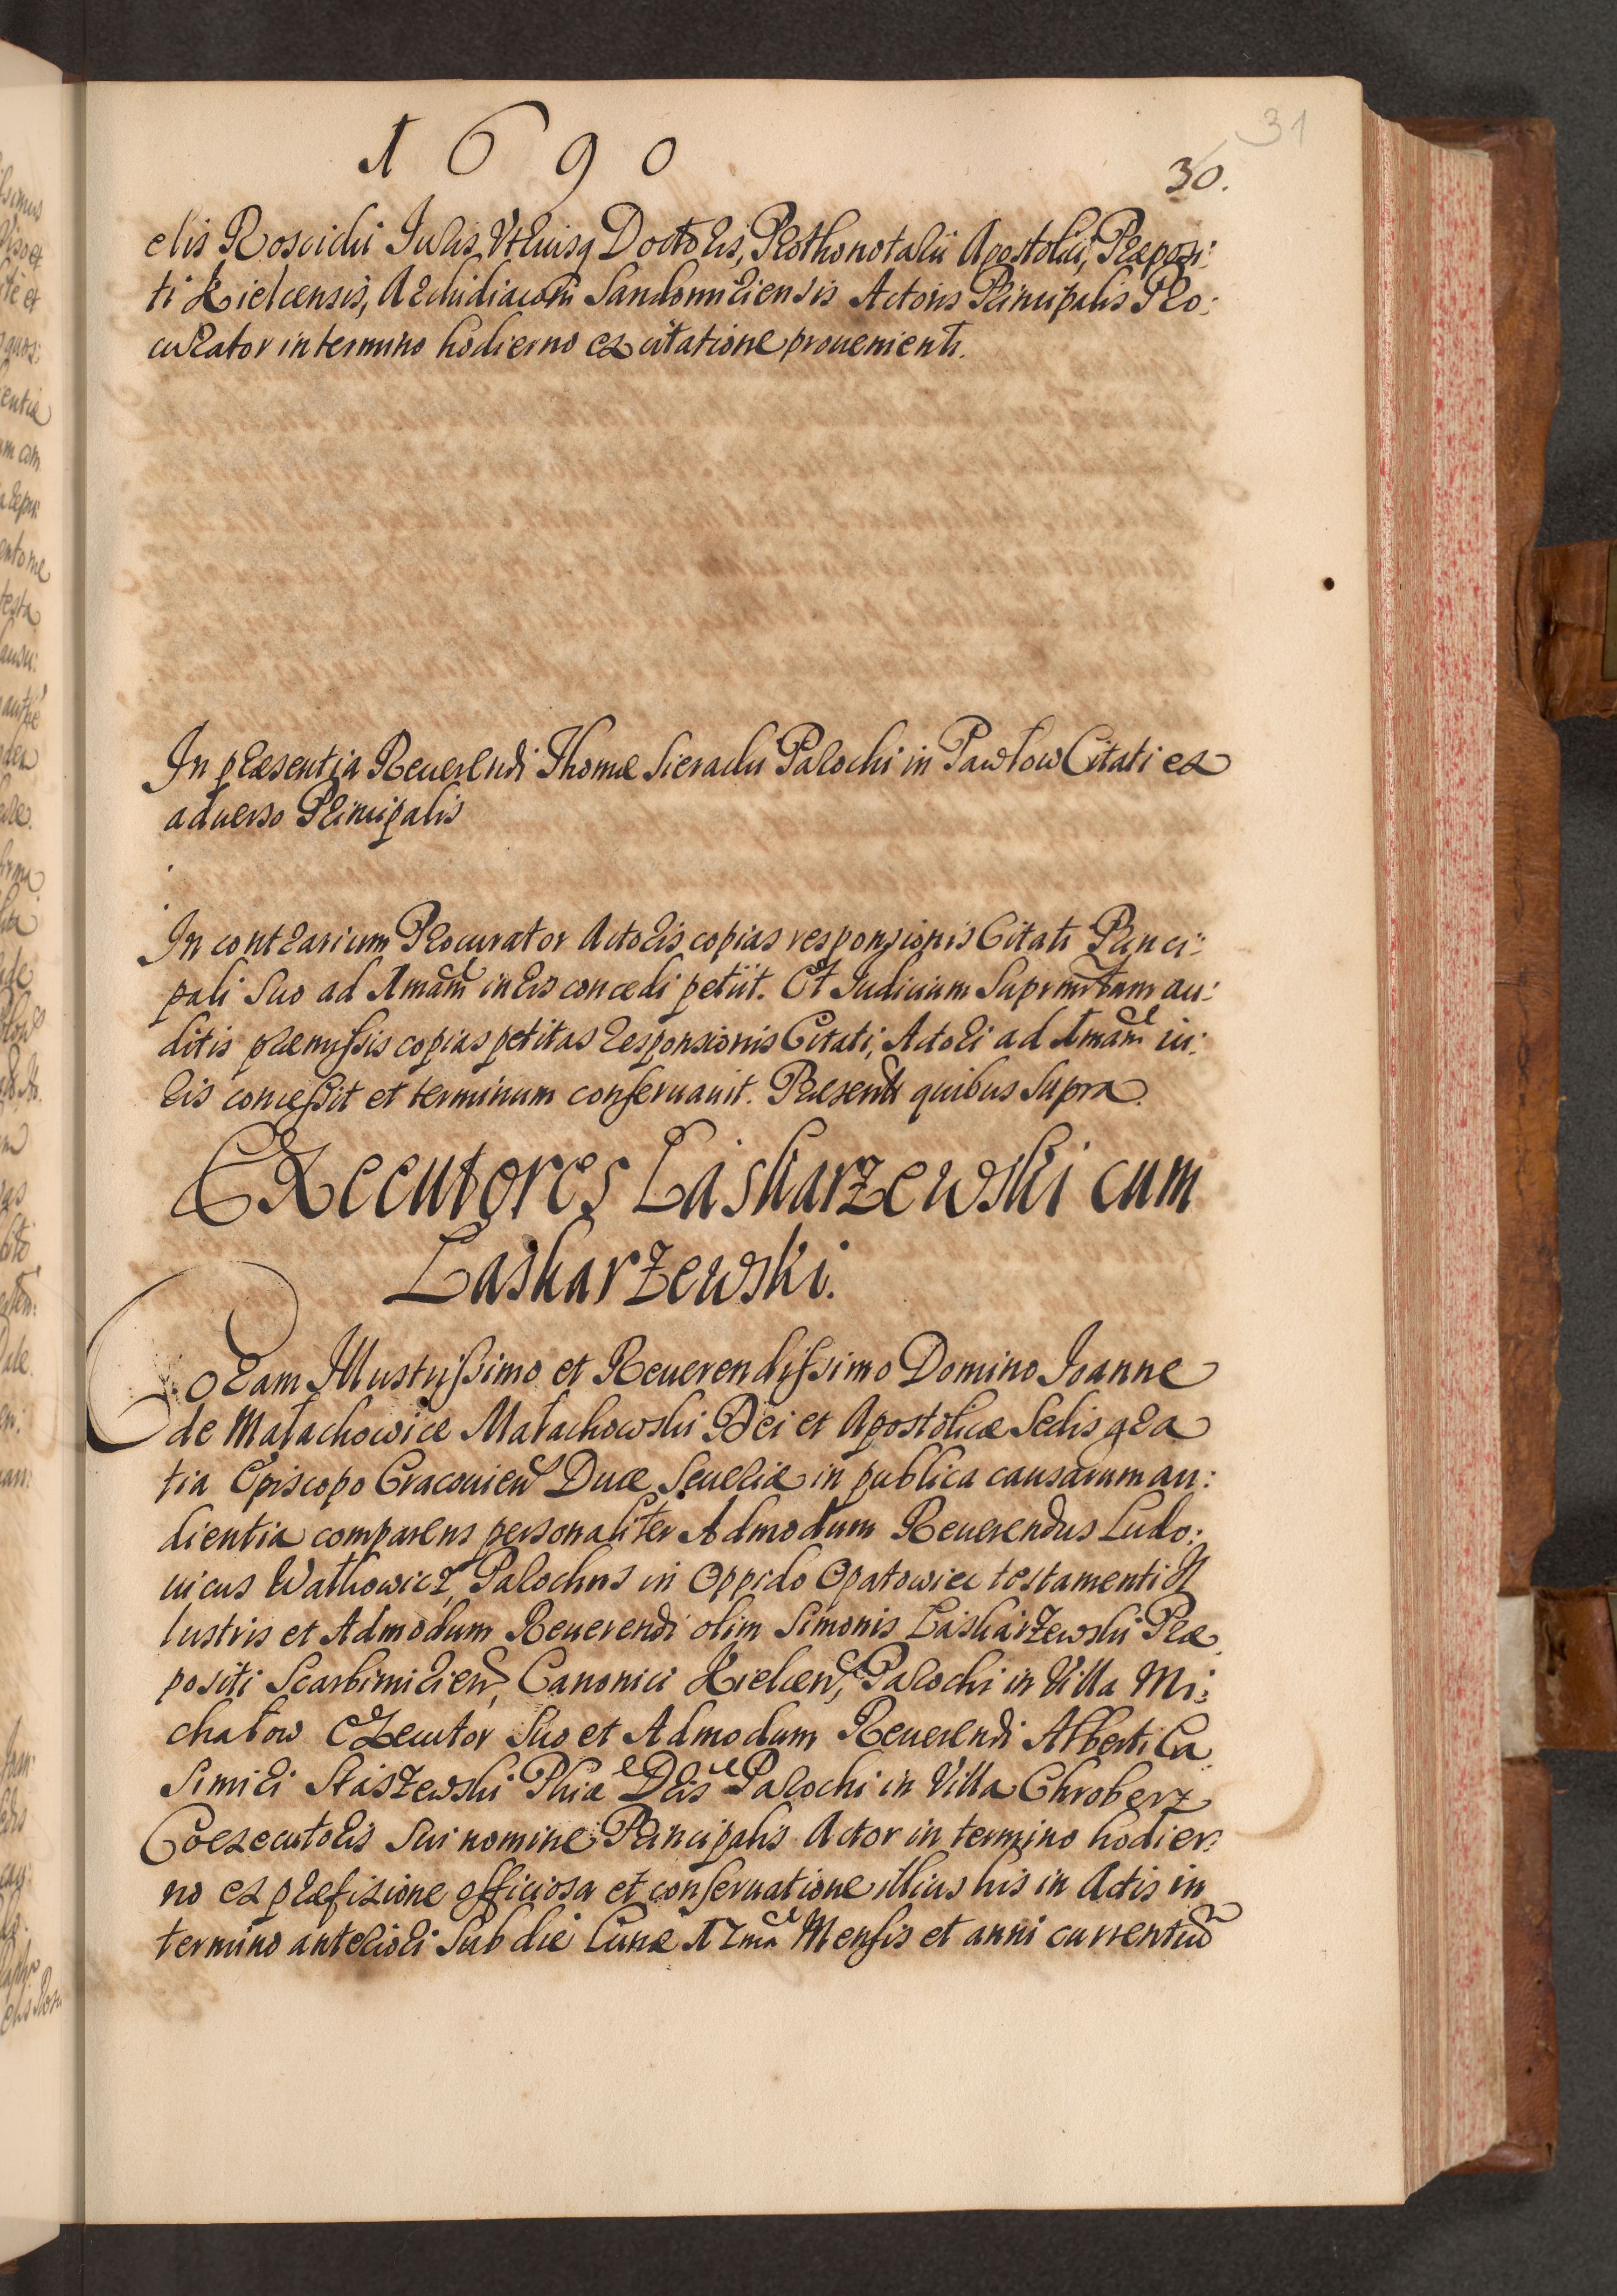 1690
31
30.
elis Roscicki Iuris Vtriusq Doctoris, Prothonotarii Apostolici, Præposi:
ti Kielcensis, Archidiaconi Sandomiriensis Actoris Principalis Pro:
curator in termino hodierno ex citatione prouenienti.
In præsentia Reuerendi Thomæ Sieracki Parochi in Pawłow Citati ex
aduerso Principalis
In contrarium Procurator Actoris copias responsionis Citati Princi:
pali suo ad 1mam iuris concedi petiit. Et Iudicium Supmtam au:
ditis præmissis copias petitas responsionis Citati, Actori ad 1mam iu:
ris concessit et terminum conseruauit. Præsentt quibus supra.
Executores Laskarzewski cum
Laskarzewski.
Coram Illustrissimo et Reuerendissimo Domino Ioanne
de Małachowice Małachowski Dei et Apostolicæ Sedis gra
tia Episcopo Cracouien Duce Seueriæ in publica causarum au:
dientia comparens personaliter Admodum Reuerendus Ludo:
uicus Watkowicz, Parochus in Oppido Opatowiec testamenti Il
lustris et Admodum Reuerendi olim Simonis Laskarzewski Præ
positi Scarbimirien, Canonici Kielcen, Parochi in Villa Mi:
chałow Executor suo et Admodum Reuerendi Alberti Ca
simiri Staszewski Phiæ Dris Parochi in Villa Chroberz
Coexecutoris sui nomine Principalis Actor in termino hodier:
no ex præfixione officiosa et conseruatione illius his in Actis in
termino anteriori sub die Lunæ 17ma Mensis et anni currentiu